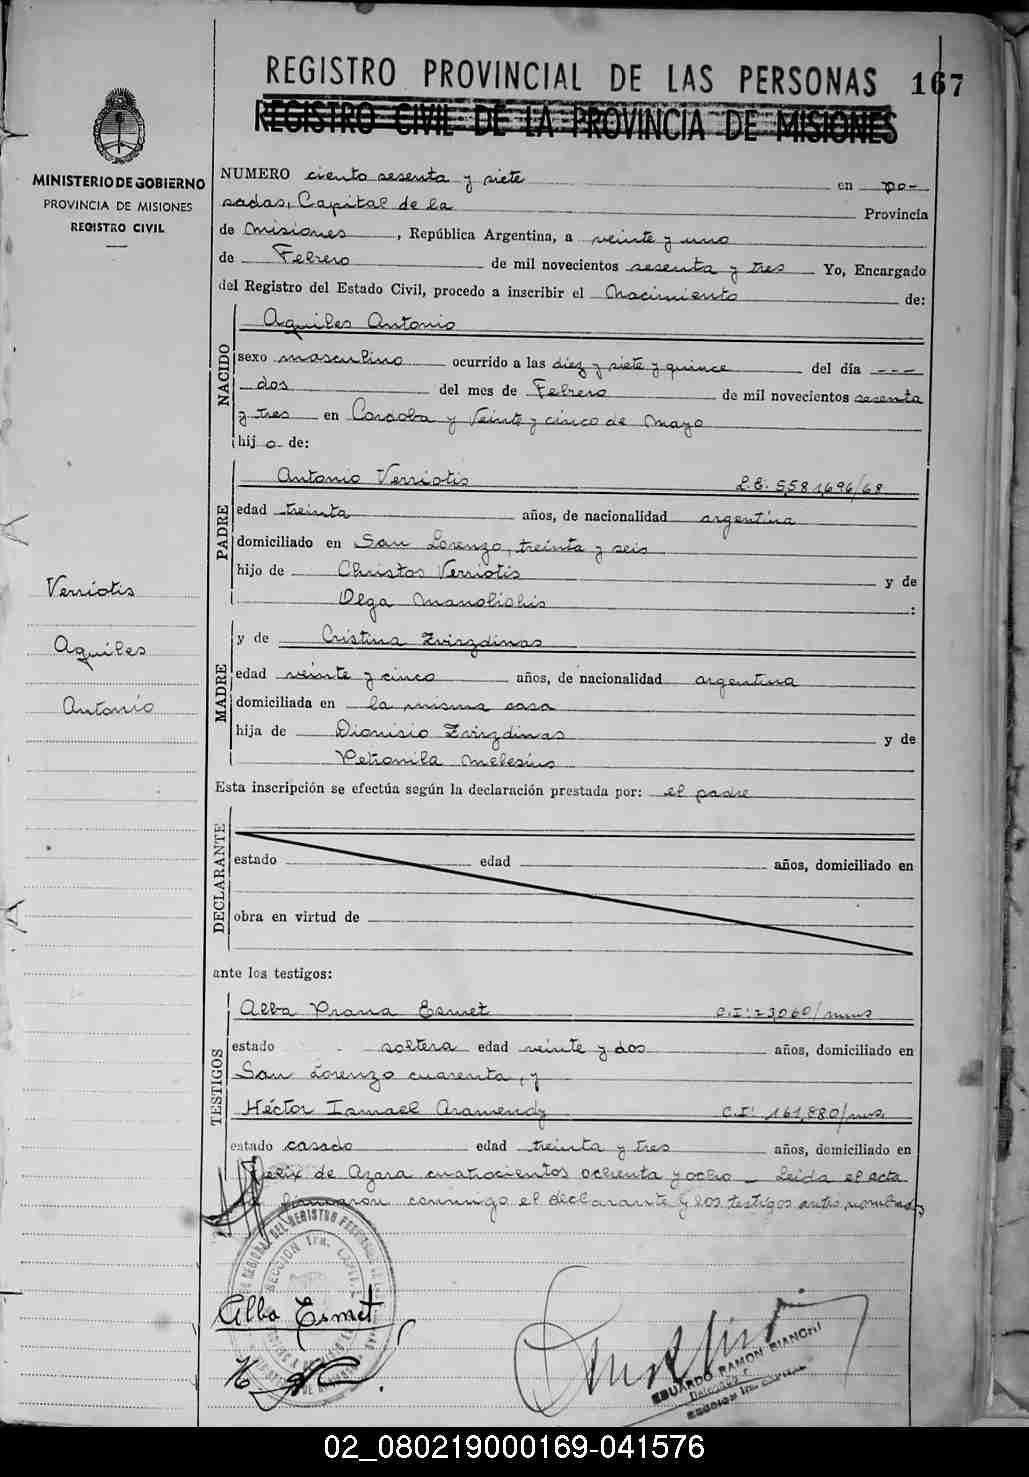 REGISTRO PROVINCIAL DE LAS PERSONAS 167
REGISTRO CIVIL DE LA PROVINCIA DE MISIONES
MINISTERIO DE GOBIERNO
PROVINCIA DE MISIONES
REGISTRO CIVIL
NUMERO ciento sesenta y siete en Po-
sadas, Capital de la Provincia
de Misiones, República Argentina, a veinte y uno
de Febrero de mil novecientos sesenta y tres Yo, Encargado
del Registro del Estado Civil, procedo a inscribir el Nacimiento de:
NACIDO
Aquiles Antonio
sexo masculino ocurrido a las diez y siete y quince del día ---
dos del mes de Febrero de mil novecientos sesenta
y tres en Cordoba y Veinte y cinco de Mayo
hijo de:
PADRE
Antonio Verriotis L.E. 5,581,696/68
edad treinta años, de nacionalidad argentina
domiciliado en San Lorenzo, treinta y seis
hijo de Christos Verriotis y de
Olga :
Verriotis
Aquiles
Antonio
MADRE
y de Cristina Zvirzdinas
edad veinte y cinco años, de nacionalidad argentina
domiciliada en la misma casa
hija de Dionisio Zvirzdinas y de
Petronila
Esta inscripción se efectúa según la declaración prestada por: el padre
DECLARANTE
estado edad años, domiciliado en
obra en virtud de
ante los testigos:
TESTIGOS
Alba Esmet C.I:
estado soltera edad veinte y dos años, domiciliado en
San Lorenzo cuarenta, y
Héctor Ismael Aramendy C.I: 161,880/mnes
estado casado edad treinta y tres años, domiciliado en
Felix de Azara cuatrocientos ochenta y ocho _ Leida el acta
firmaron conmigo el declarante y los testigos antes nombrados
SECCION 1ra. CAPITAL
Alba Esmet
EDUARDO RAMON BIANCHI
02_080219000169-041576